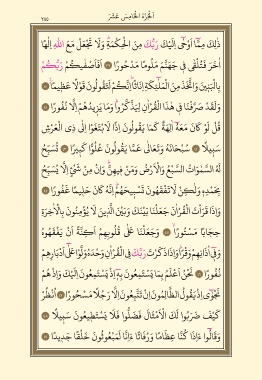 الجزء الخامس عشر
٢٨٥
ذلك مما اوحى اليك ربك من الحكمة ولا تجعل مع الله الها
اخر فتلقى في جهنم ملوما مدحورا افاصفيكم ربكم
بالبنين واتخذ من الملئكة اناثا انكم لتقولون قولا عظيما
ولقد صرفنا في هذا القران ليذكروا وما يزيدهم الا نفورا
قل لو كان معه الهة كما يقولون اذا لابتغوا الى ذي العرش
سبيلا سبحانه وتعالى عما يقولون علوا كبيرا تسبح
له السموات السبع والارض ومن فيهن وان من شيء الا يسبح
بحمده ولكن لا تفقهون تسبيحهم انه كان حليما غفورا
واذا قرات القران جعلنا بينك وبين الذين لا يؤمنون بالاخرة
حجابا مستورا وجعلنا على قلوبهم اكنة ان يفقهوه
وفي اذانهم وقرا واذا ذكرت ربك في القران وحده ولوا على ادبارهم
نفورا نحن اعلم بما يستمعون به اذ يستمعون اليك واذ هم
نجوى اذ يقول الظالمون ان تتبعون الا رجلا مسحورا انظر
كيف ضربوا لك الامثال فضلوا فلا يستطيعون سبيلا
وقالوا ءاذا كنا عظاما ورفاتا ءانا لمبعوثون خلقا جديدا